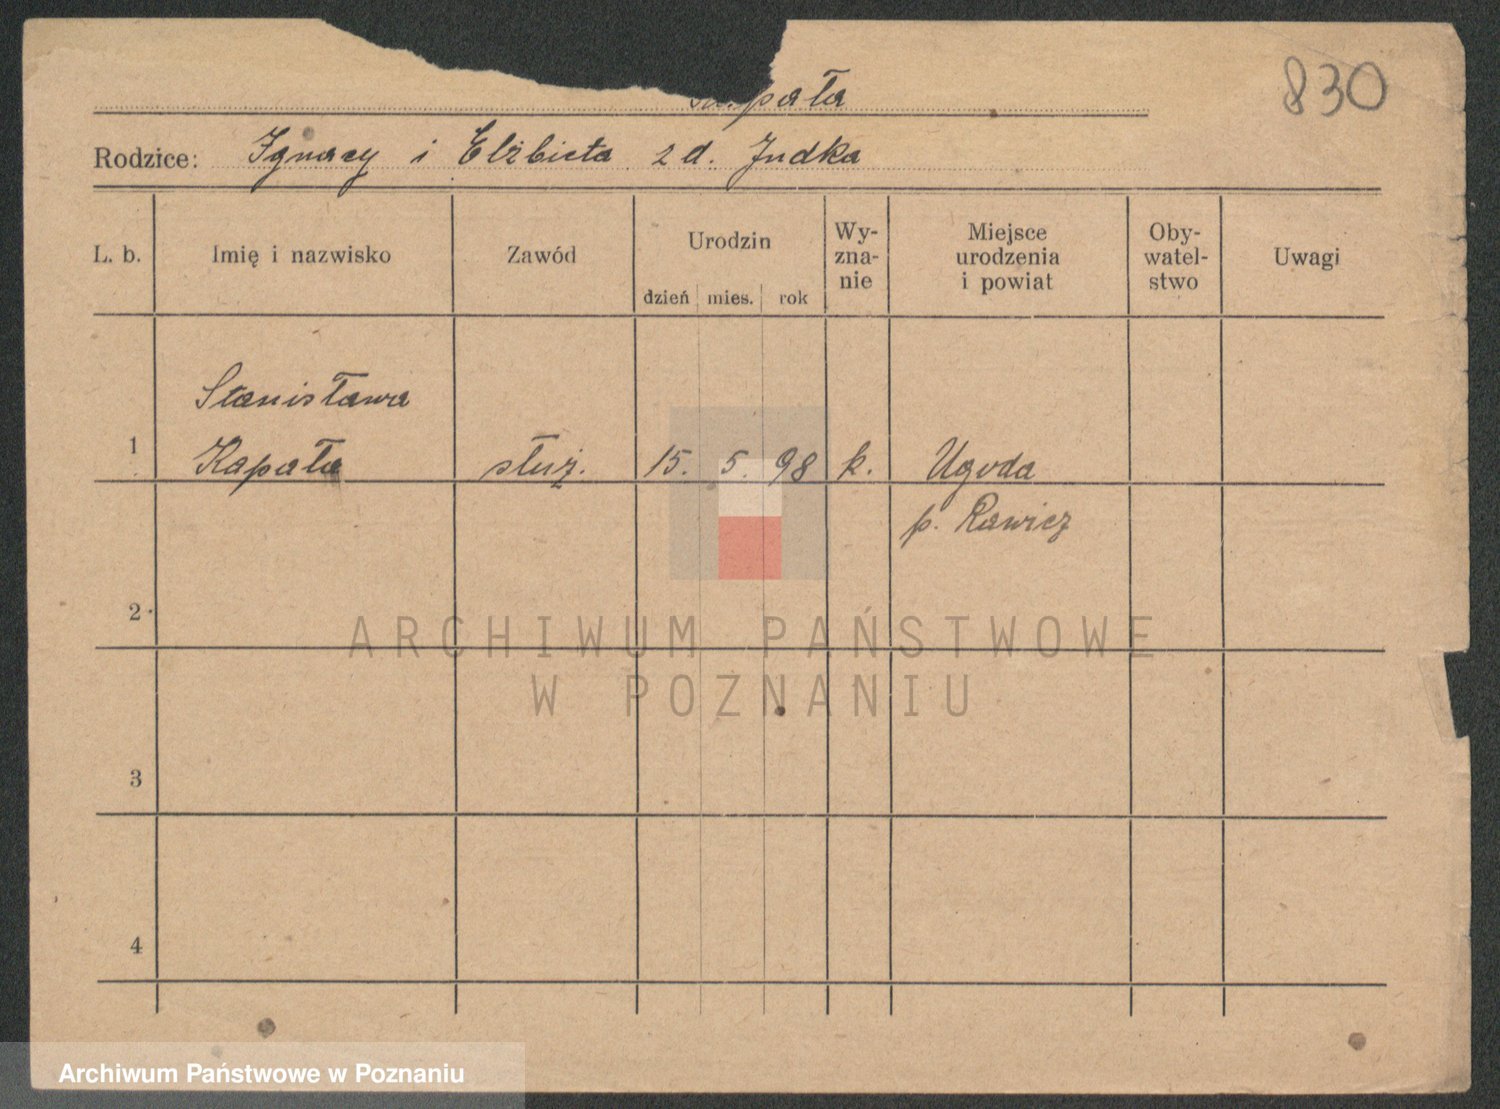 830
Kapała
Rodzice: Ignacy i Elżbieta z d. Judka
L. b. Imię i nazwisko Zawód Urodzin Wy-zna-nie Miejsce urodzenia i powiat Oby-watel-stwo Uwagi
dzień mies. rok
Stanisława
1 Kapała służ. 15. 5. 98 k. Ugoda
p. Rawicz
2
ARCHIWUM PAŃSTWOWE
W POZNANIU
3
4
Archiwum Państwowe w Poznaniu